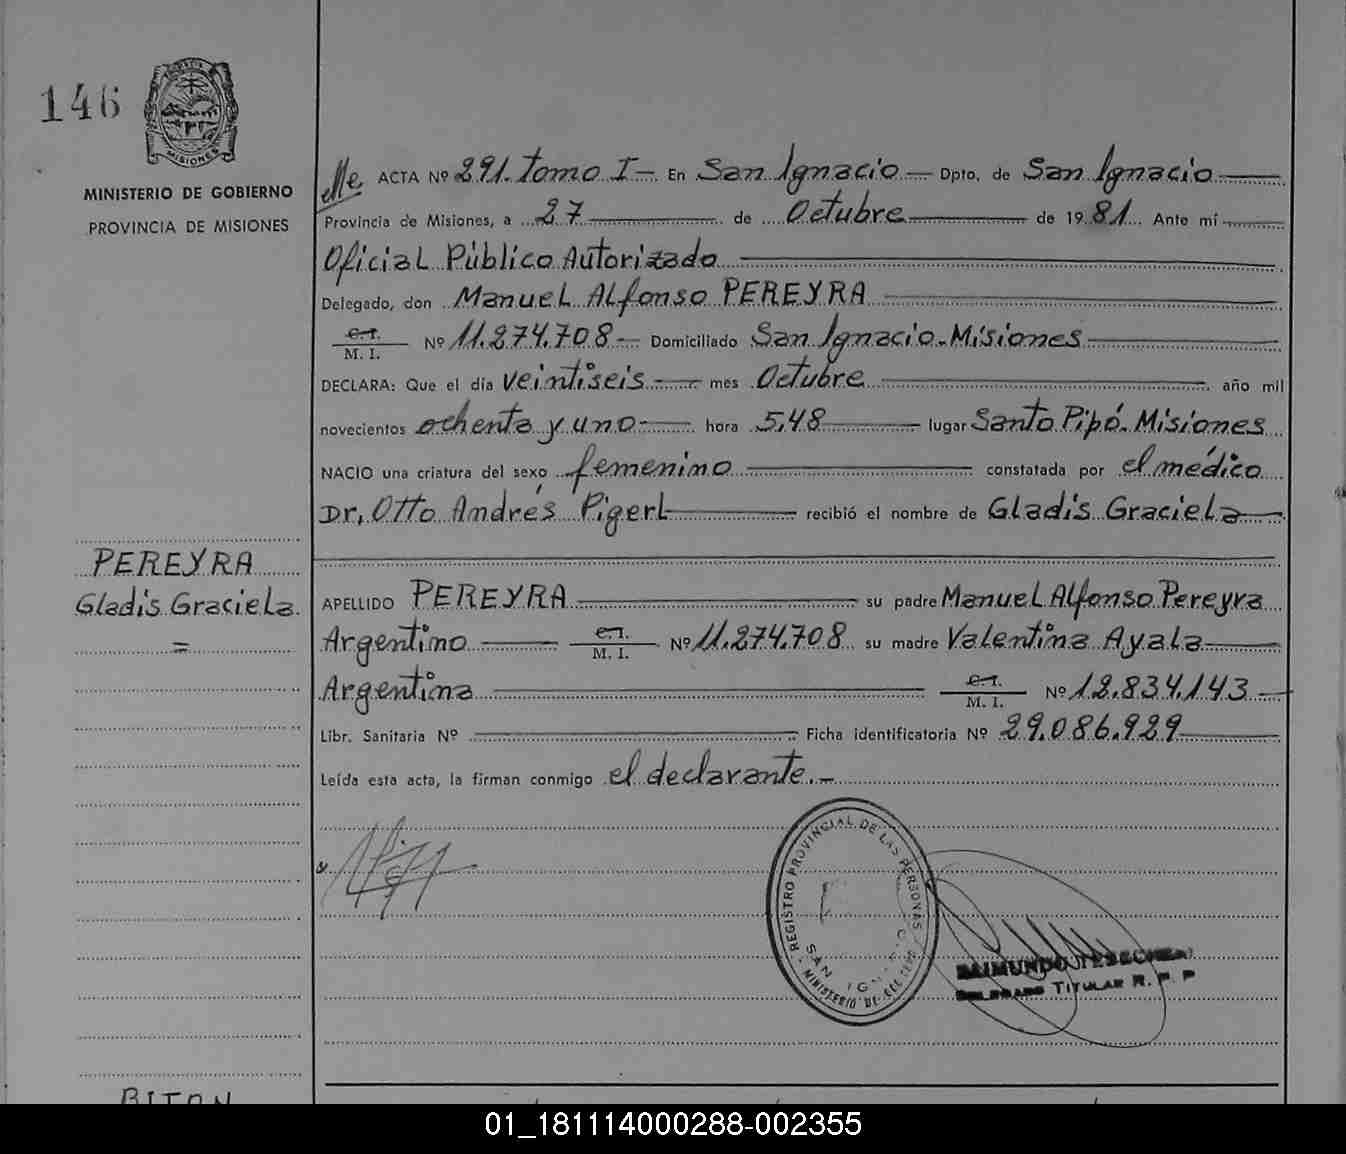 146
MISIONES
MINISTERIO DE GOBIERNO
PROVINCIA DE MISIONES
ACTA Nº 291. Tomo I - En San Ignacio - Dpto. de San Ignacio
Provincia de Misiones, a 27 de Octubre de 1981 Ante mí
Oficial Público Autorizado
Delegado, don Manuel Alfonso PEREYRA
C.I.
M. I. Nº 11.274.708 - Domiciliado San Ignacio - Misiones
DECLARA: Que el día veintiseis mes Octubre año mil
novecientos ochenta y uno hora 5,48 lugar Santo Pipó. Misiones
NACIO una criatura del sexo femenino constatada por el médico
Dr, Otto Andrés Pigerl recibió el nombre de Gladis Graciela
PEREYRA
Gladis Graciela.
=
APELLIDO PEREYRA su padre Manuel Alfonso Pereyra
Argentino C.I.
M. I. Nº 11.274.708 su madre Valentina Ayala
Argentina C.I.
M. I. Nº 12.834.143 -
Libr. Sanitaria Nº Ficha identificatoria Nº 29.086.929
Leída esta acta, la firman conmigo el declarante. -
REGISTRO PROVINCIAL DE LAS PERSONAS
SAN
MINISTERIO DE
RAIMUNDO
DELEGADO TITULAR R. P. P
01_181114000288-002355